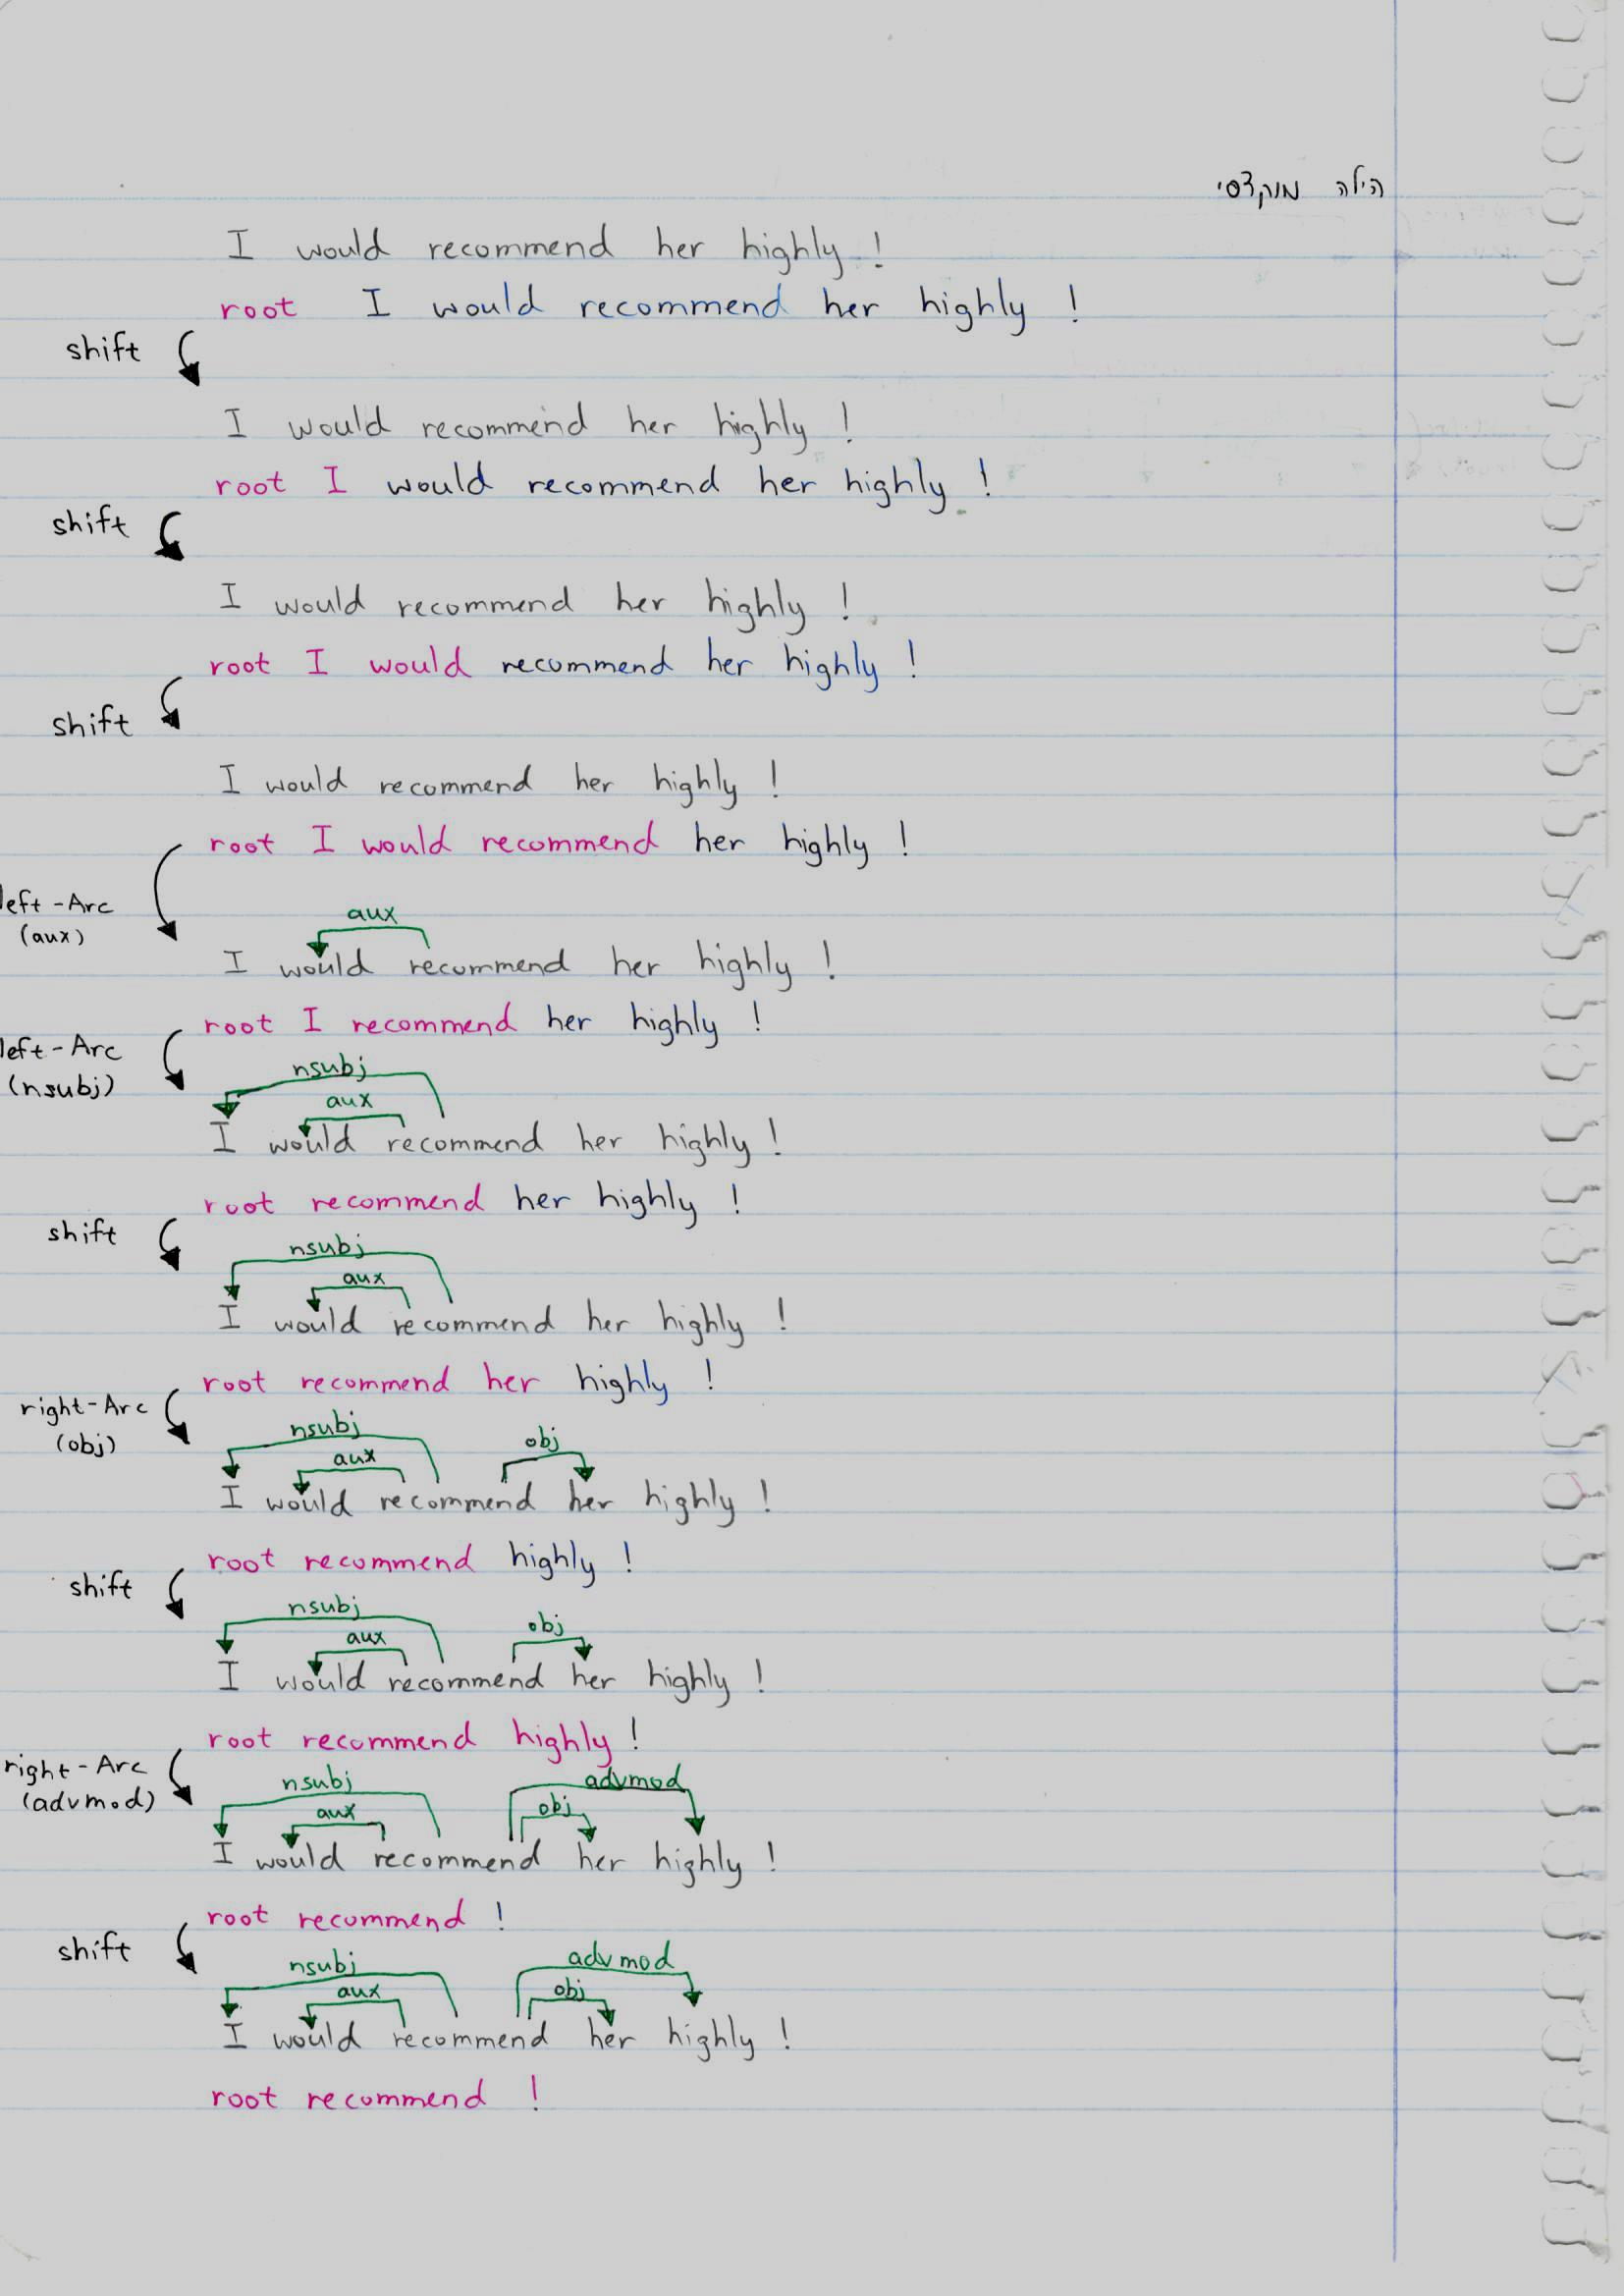 הילה מוקדסי
I would recommend her highly !
root I would recommend her highly !
shift
I would recommend her highly !
root I would recommend her highly !
shift
I would recommend her highly !
root I would recommend her highly !
shift
I would recommend her highly !
root I would recommend her highly !
left-Arc
(aux)
aux
I would recommend her highly !
root I recommend her highly !
left-Arc
(nsubj)
nsubj
aux
I would recommend her highly !
root recommend her highly !
shift
nsubj
aux
I would recommend her highly !
root recommend her highly !
right-Arc
(obj)
nsubj obj
aux
I would recommend her highly !
root recommend highly !
shift
nsubj obj
aux
I would recommend her highly !
root recommend highly !
right-Arc
(advmod)
nsubj advmod
aux obj
I would recommend her highly !
root recommend !
shift
nsubj advmod
aux obj
I would recommend her highly !
root recommend !